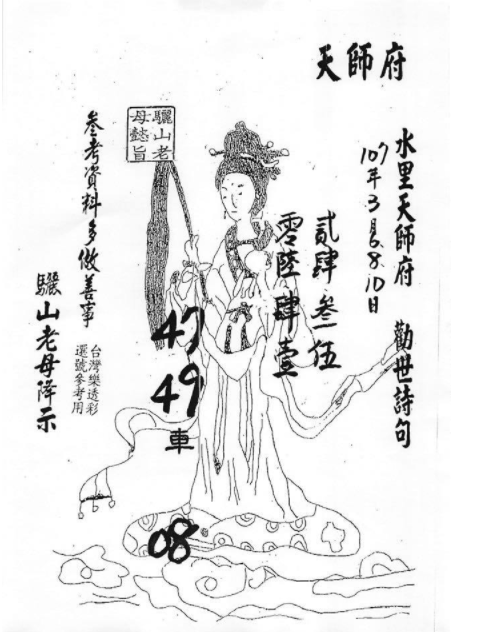 天師府
水里天師府 勸世詩句
107年3月6.8.10日
貳肆叁伍
零陸肆壹
驪山老
母懿旨
47
49
車
08
叁考資料多做善事
台灣樂透彩
選號參考用
驪山老母降示